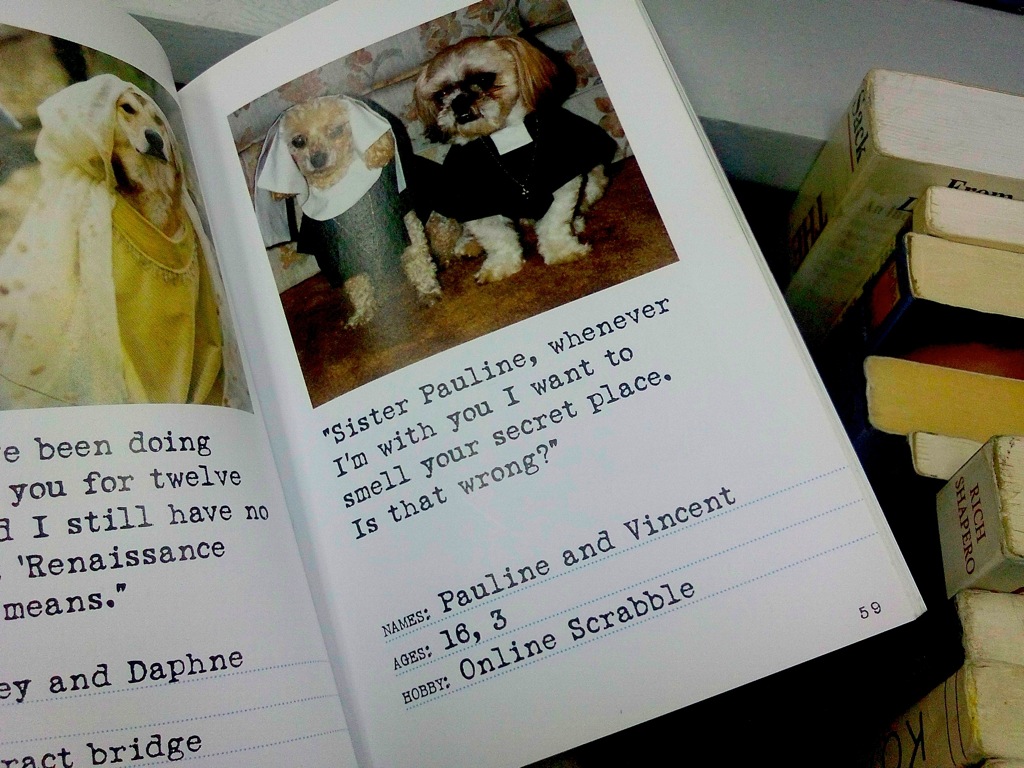 e been doing
you for twelve
d I still have no
'Renaissance
means."
ey and Daphne
ract bridge
"Sister Pauline, whenever
I'm with you I want to
smell your secret place.
Is that wrong?"
NAMES: Pauline and Vincent
AGES: 16, 3
HOBBY: Online Scrabble
59
Sack
From
RICH
SHAPERO
KO